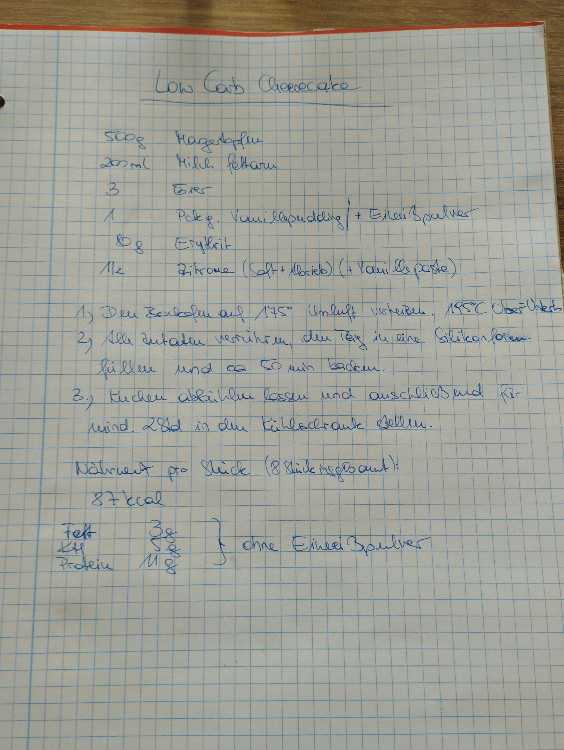 Low Carb Cheesecake
500g Magertopfen
200ml Milch fettarm
3 Eier
1 Pckg. Vanillepudding / + Eiweißpulver
80g Erythrit
1/2 Zitrone (Saft + Abrieb) (+ Vanillepaste)
1.) Den Backofen auf 175° Umluft vorheizen, 195°C Ober-Unterh.
2.) Alle Zutaten verrühren, den Teig in eine Silikonform
füllen und ca 50 min backen.
3.) Kuchen abkühlen lassen und anschließend für
mind. 2Std in den Kühlschrank stellen.
Nährwert pro Stück (8 Stück insgesamt):
87 kcal
Fett 3g
KH 5g } ohne Eiweißpulver
Protein 11g